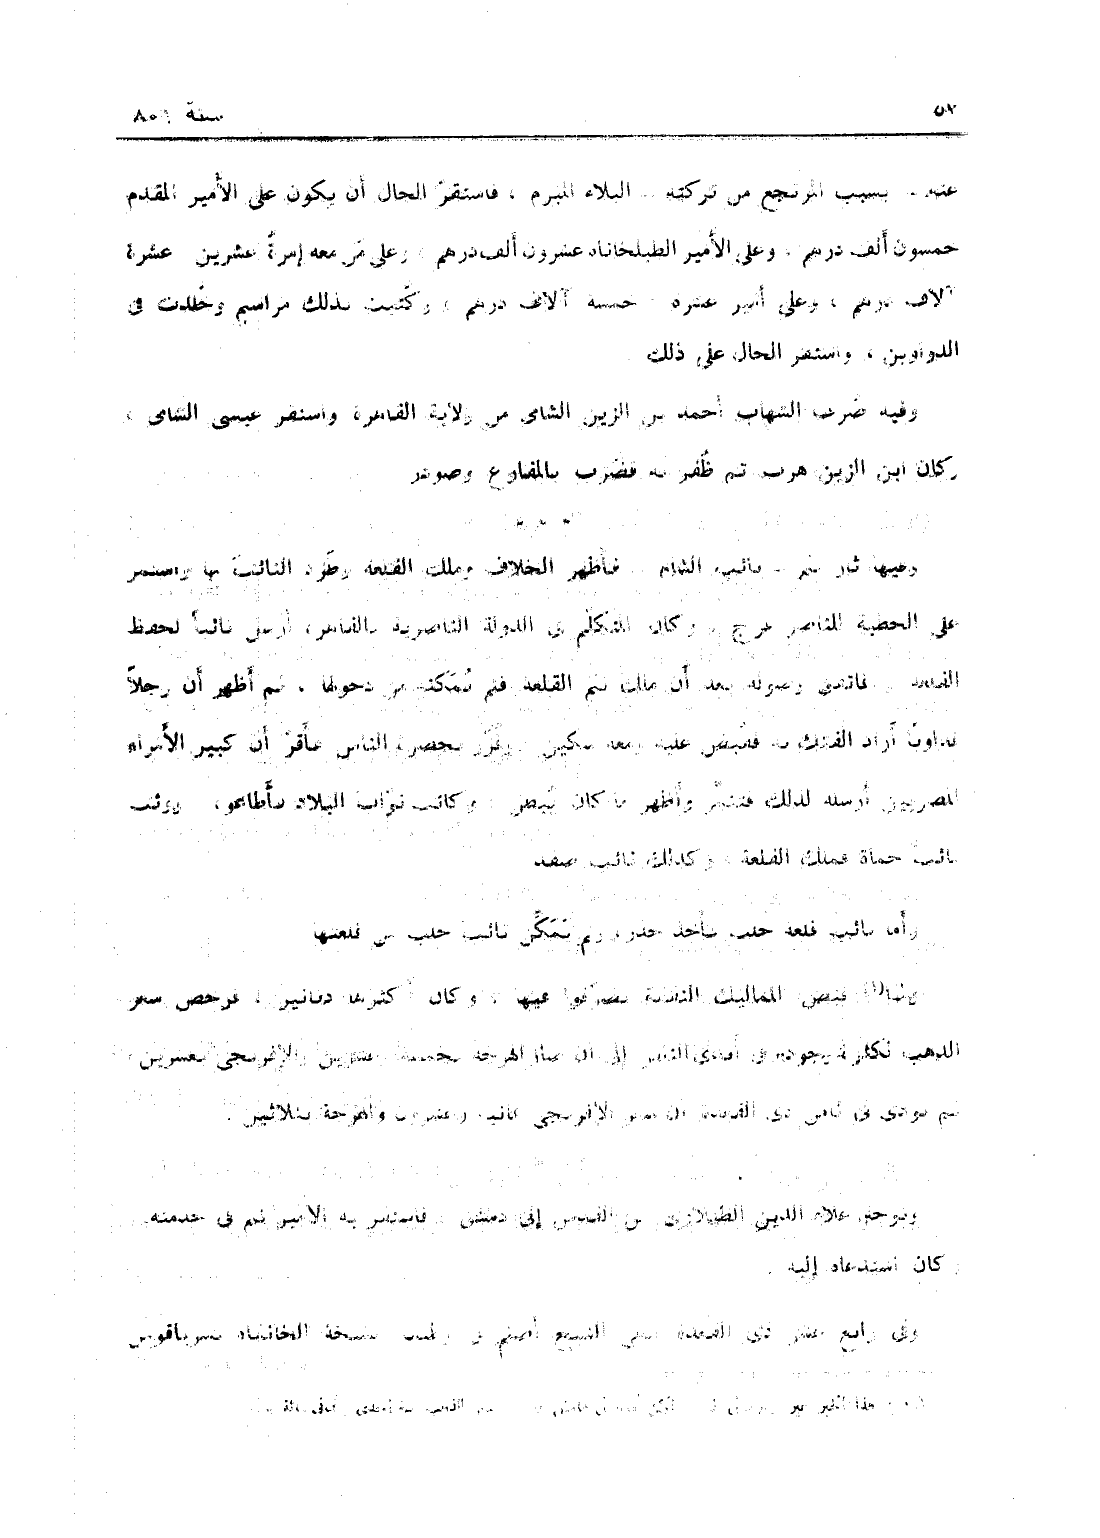 ٥٢ سنة ٨٠١
عنه - بسبب المرتجع من تركته - البلاء المبرم ، فاستقرّ الحال أن يكون على الأمير المقدم
خمسون ألف درهم ، وعلى الأمير الطبلخاناه عشرون ألف درهم ، وعلى من معه إمرةُ عشرين عشرة
آلاف درهم ، وعلى أمير عشرة خمسة آلاف درهم ، وكُتبت بذلك مراسيم وخُلدت فى
الدواوين ، واستقر الحال على ذلك
وفيه صُرف الشهاب أحمد بن الزين الشامى من ولاية القاهرة واستقر عيسى الشامى ،
وكان ابن الزين هرب ثم ظُفر به فضُرب بالمقارع وصودر
* * *
وفيها ثار تنم - نائب الشام - فأظهر الخلاف وملك القلعة وطَرَد النائبَ بها واستمر
على الخطبة للناصر فرج ، وكان المتكلم فى الدولة الناصرية بالقاهرة أرسل نائباً لحفظ
القلعة ، فاتفق وصوله بعد أن ملك تنم القلعة فلم تُمَكنه من دخولها ، ثم أظهر أن رجلاً
فداوياً أراد الفتك به فقُبض عليه ومعه سكين وقُرِّر بحضرة الناس فأقرّ أن كبير الأمراء
المصريين أرسله لذلك فتنمَّر وأظهر ما كان يُبطن ، وكاتب نوّاب البلاد فأطاعوه، ووثب
نائبُ حماة فملك القلعة ، وكذلك نائب صفد
وأما نائب قلعة حلب فأخذ حذره ولم يُمَكِّن نائب حلب من قلعتها
ولما(١) قبض المماليك النفقة تصرّفوا فيها ، وكان أكثرها دنانير ، فرخص سعر
الذهب لكثرة وجوده فى أيدى الناس إلى أن صار الهرجة بخمسة وعشرين والإفرنجى بعشرين ،
ثم نودى فى ثامن ذى القعدة أن سعر الإفرنجى ثمانية وعشرون والهرجة بثلاثين .
وتوجه علاء الدين الطبلاوى من القدس إلى دمشق ، فاستقر به الأمير تنم فى خدمته
وكان استدعاه إليه .
وفى رابع عشر ذى القعدة الشيخ أصلم مشيخة الخانقاه بسرياقوس
هذا الخبر غير الذهب